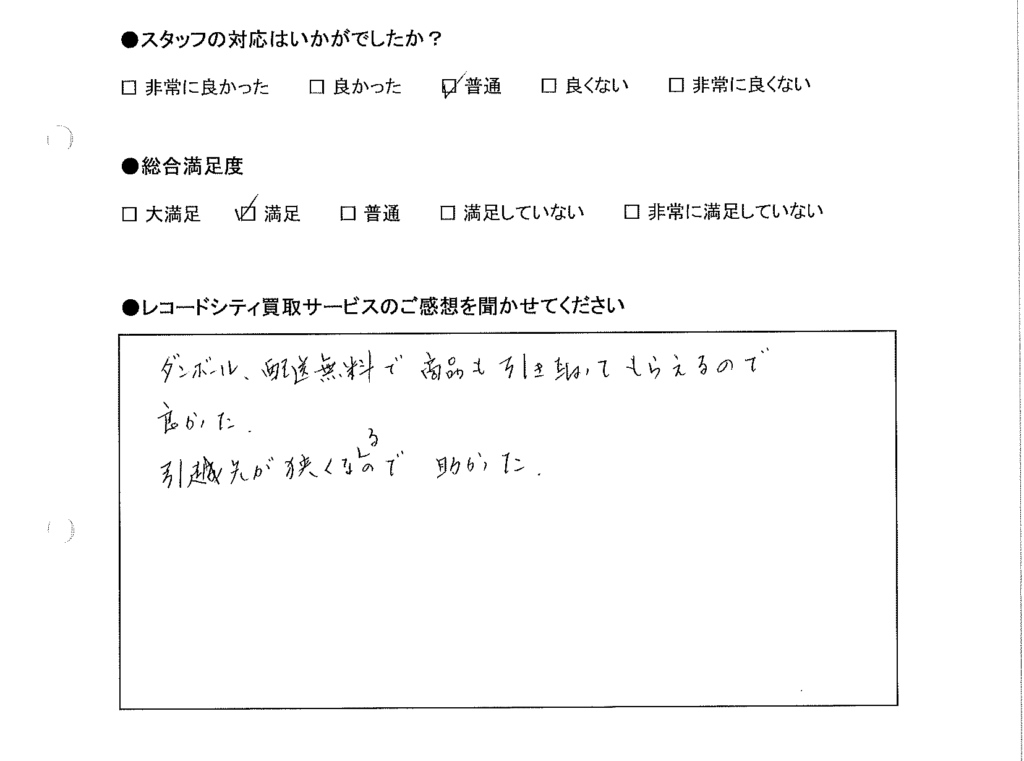 ●スタッフの対応はいかがでしたか？
□ 非常に良かった □ 良かった ☑ 普通 □ 良くない □ 非常に良くない
●総合満足度
□ 大満足 ☑ 満足 □ 普通 □ 満足していない □ 非常に満足していない
●レコードシティ買取サービスのご感想を聞かせてください
ダンボール、配送無料で 商品も引き取ってもらえるので
良かった.
引越先が狭くなるので 助かった.